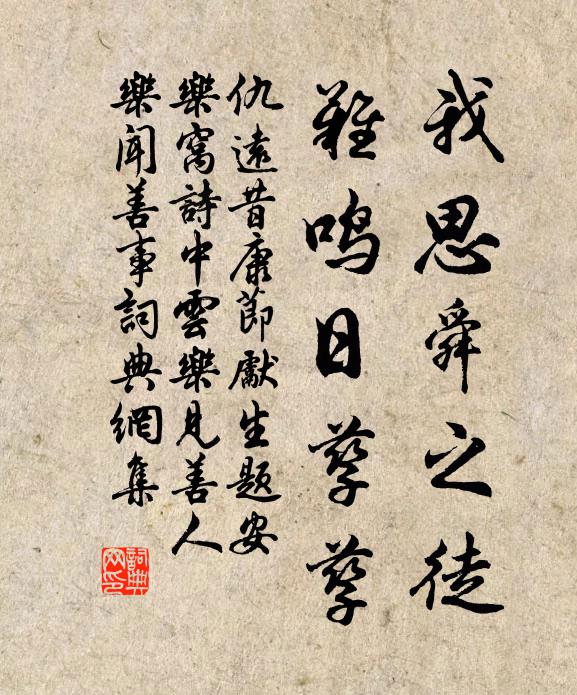 我思舜之徒
雞鳴日孳孳
仇遠昔康節獻生題安
樂窩詩中雲樂見善人
樂聞善事詞典網集
詞典网印